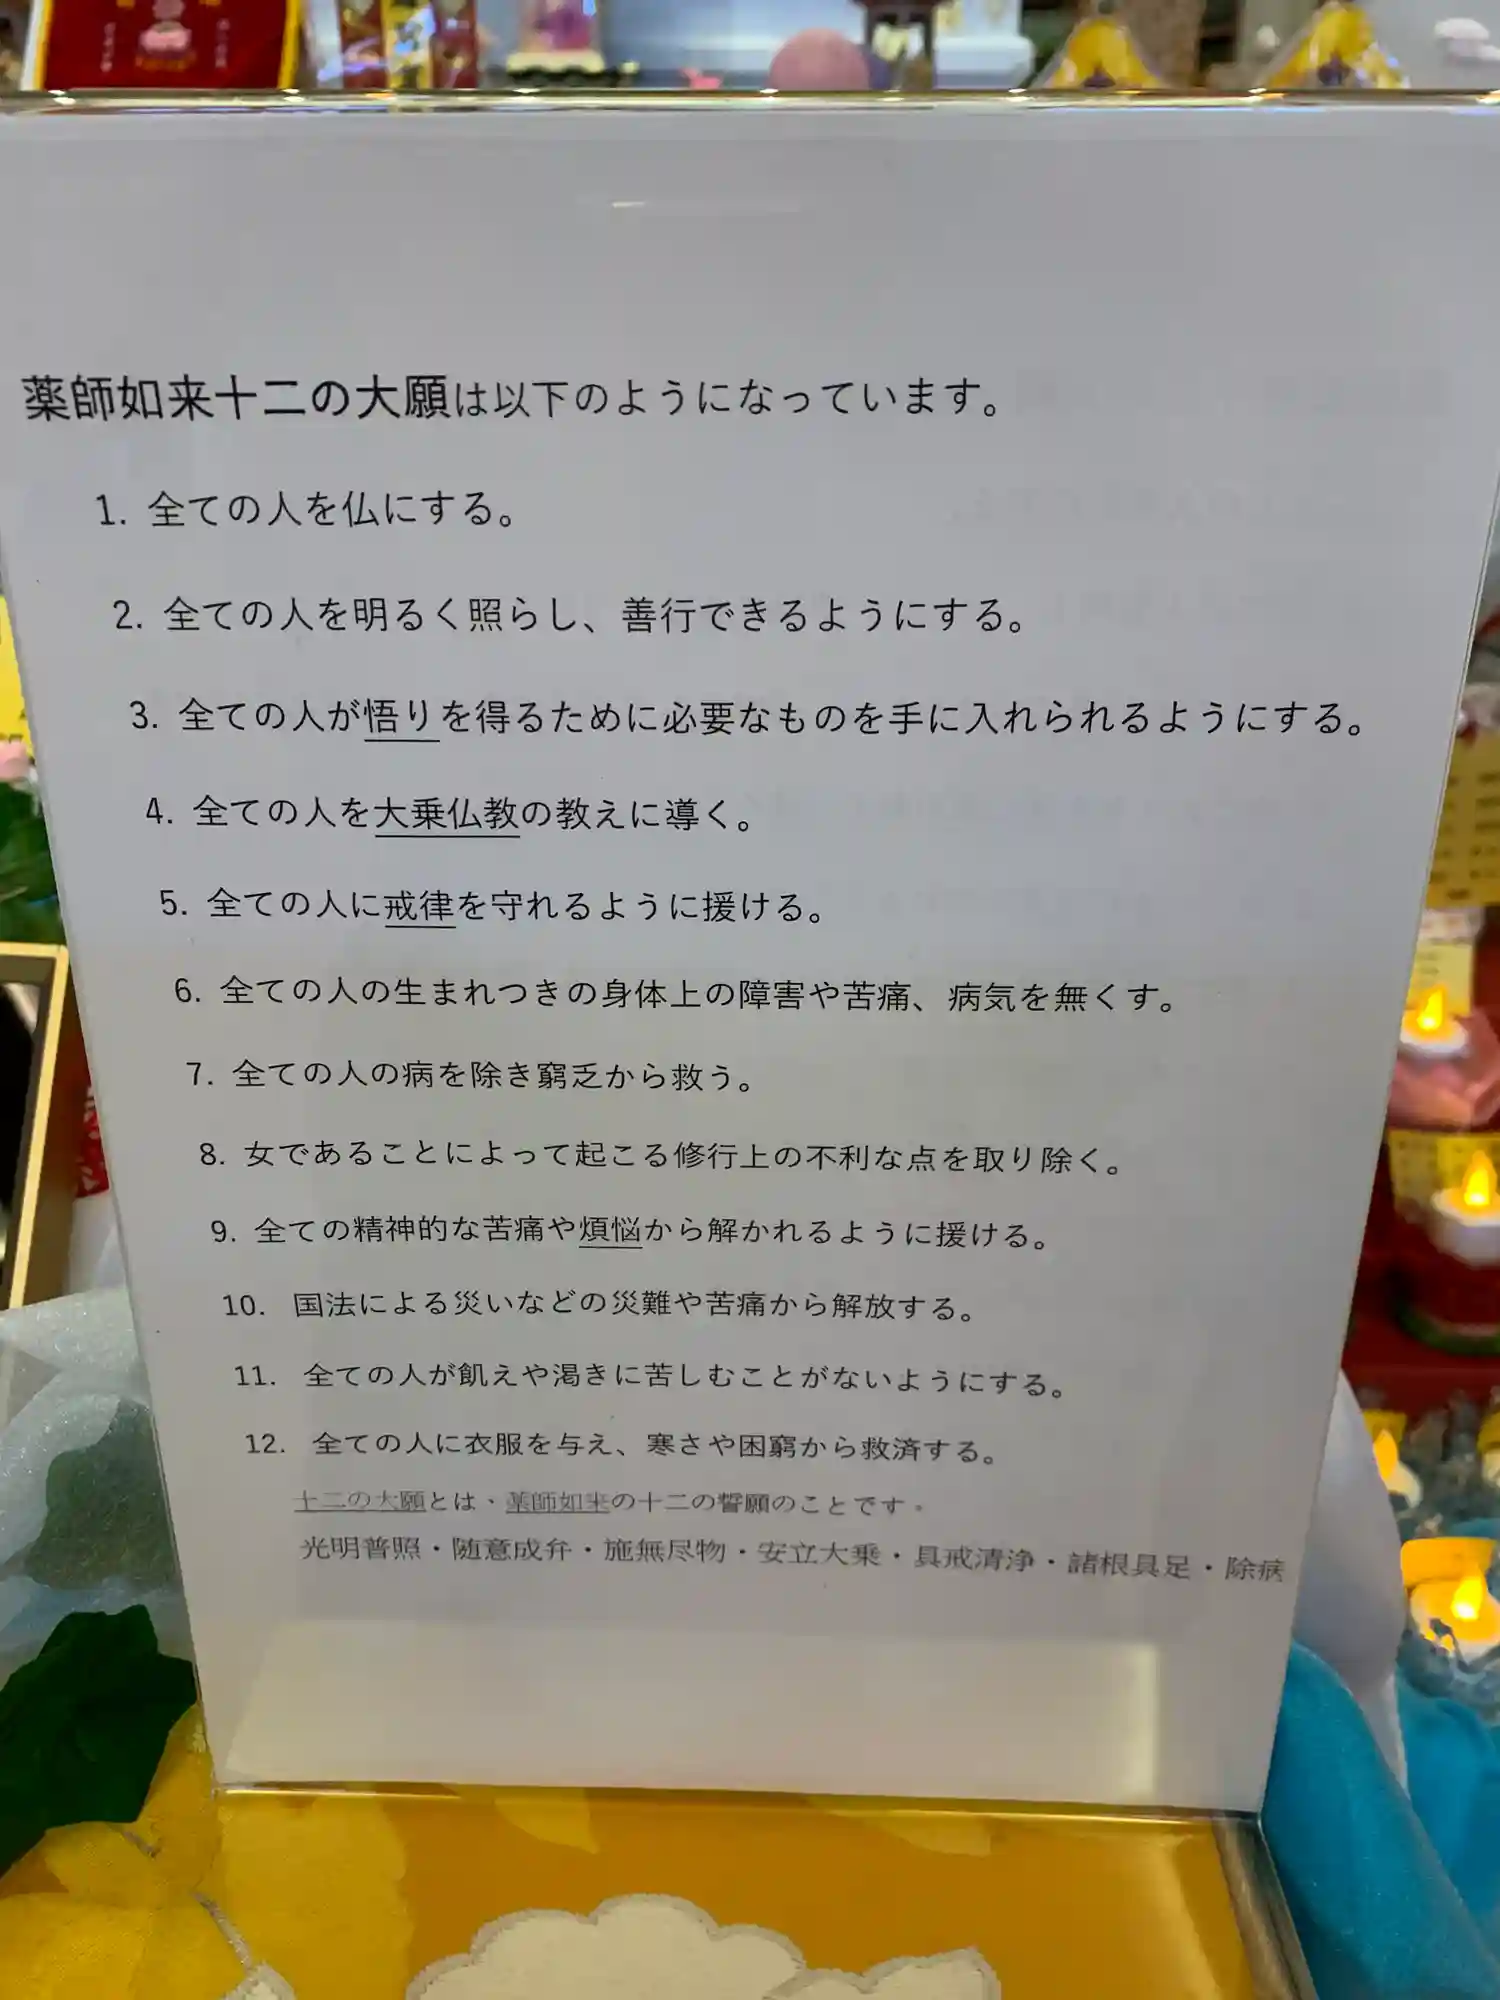 薬師如来十二の大願は以下のようになっています。
1. 全ての人を仏にする。
2. 全ての人を明るく照らし、善行できるようにする。
3. 全ての人が悟りを得るために必要なものを手に入れられるようにする。
4. 全ての人を大乗仏教の教えに導く。
5. 全ての人に戒律を守れるように援ける。
6. 全ての人の生まれつきの身体上の障害や苦痛、病気を無くす。
7. 全ての人の病を除き窮乏から救う。
8. 女であることによって起こる修行上の不利な点を取り除く。
9. 全ての精神的な苦痛や煩悩から解かれるように援ける。
10. 国法による災いなどの災難や苦痛から解放する。
11. 全ての人が飢えや渇きに苦しむことがないようにする。
12. 全ての人に衣服を与え、寒さや困窮から救済する。
十二の大願とは、薬師如来の十二の誓願のことです。
光明普照・随意成弁・施無尽物・安立大乗・具戒清浄・諸根具足・除病